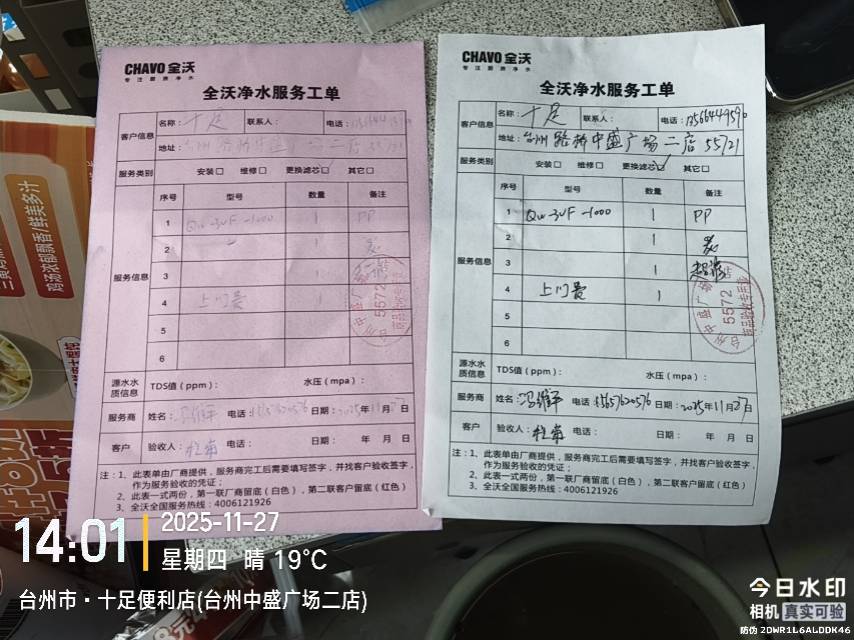 CHAVO 全沃
专注厨房净水
全沃净水服务工单
客户信息
名称：十足
联系人：
电话：
地址：台州路桥中盛广场二店
服务类别
安装□ 维修□ 更换滤芯□ 其它□
序号 型号 数量 备注
服务信息
1 1 PP
2 1
3 1
4 上门费 1
5
6
源水水质信息
TDS值（ppm）： 水压（mpa）：
服务商
姓名： 电话： 日期：2025年11月27日
客户
验收人： 电话： 日期： 年 月 日
注：1、此表单由厂商提供，服务商完工后需要填写签字，并找客户验收签字，
作为服务验收的凭证；
2、此表一式两份，第一联厂商留底（白色），第二联客户留底（红色）
3、全沃全国服务热线：4006121926
CHAVO 全沃
专注厨房净水
全沃净水服务工单
客户信息
名称：十足
联系人：
电话：
地址：台州路桥中盛广场二店 55721
服务类别
安装□ 维修□ 更换滤芯☑ 其它□
序号 型号 数量 备注
服务信息
1 QW-3UF-1000 1 PP
2 1 炭
3 1 超滤
4 上门费 1
5
6
台州中盛广场二店
5572
商品验收专用章
源水水质信息
TDS值（ppm）： 水压（mpa）：
服务商
姓名： 电话： 日期：2025年11月27日
客户
验收人： 电话： 日期： 年 月 日
注：1、此表单由厂商提供，服务商完工后需要填写签字，并找客户验收签字，
作为服务验收的凭证；
2、此表一式两份，第一联厂商留底（白色），第二联客户留底（红色）
3、全沃全国服务热线：4006121926
鸡汤浓郁飘香/鲜美多汁
14:01
2025-11-27
星期四 晴 19℃
台州市·十足便利店(台州中盛广场二店)
今日水印
相机 真实可验
防伪 2DWR1L6ALDDK46